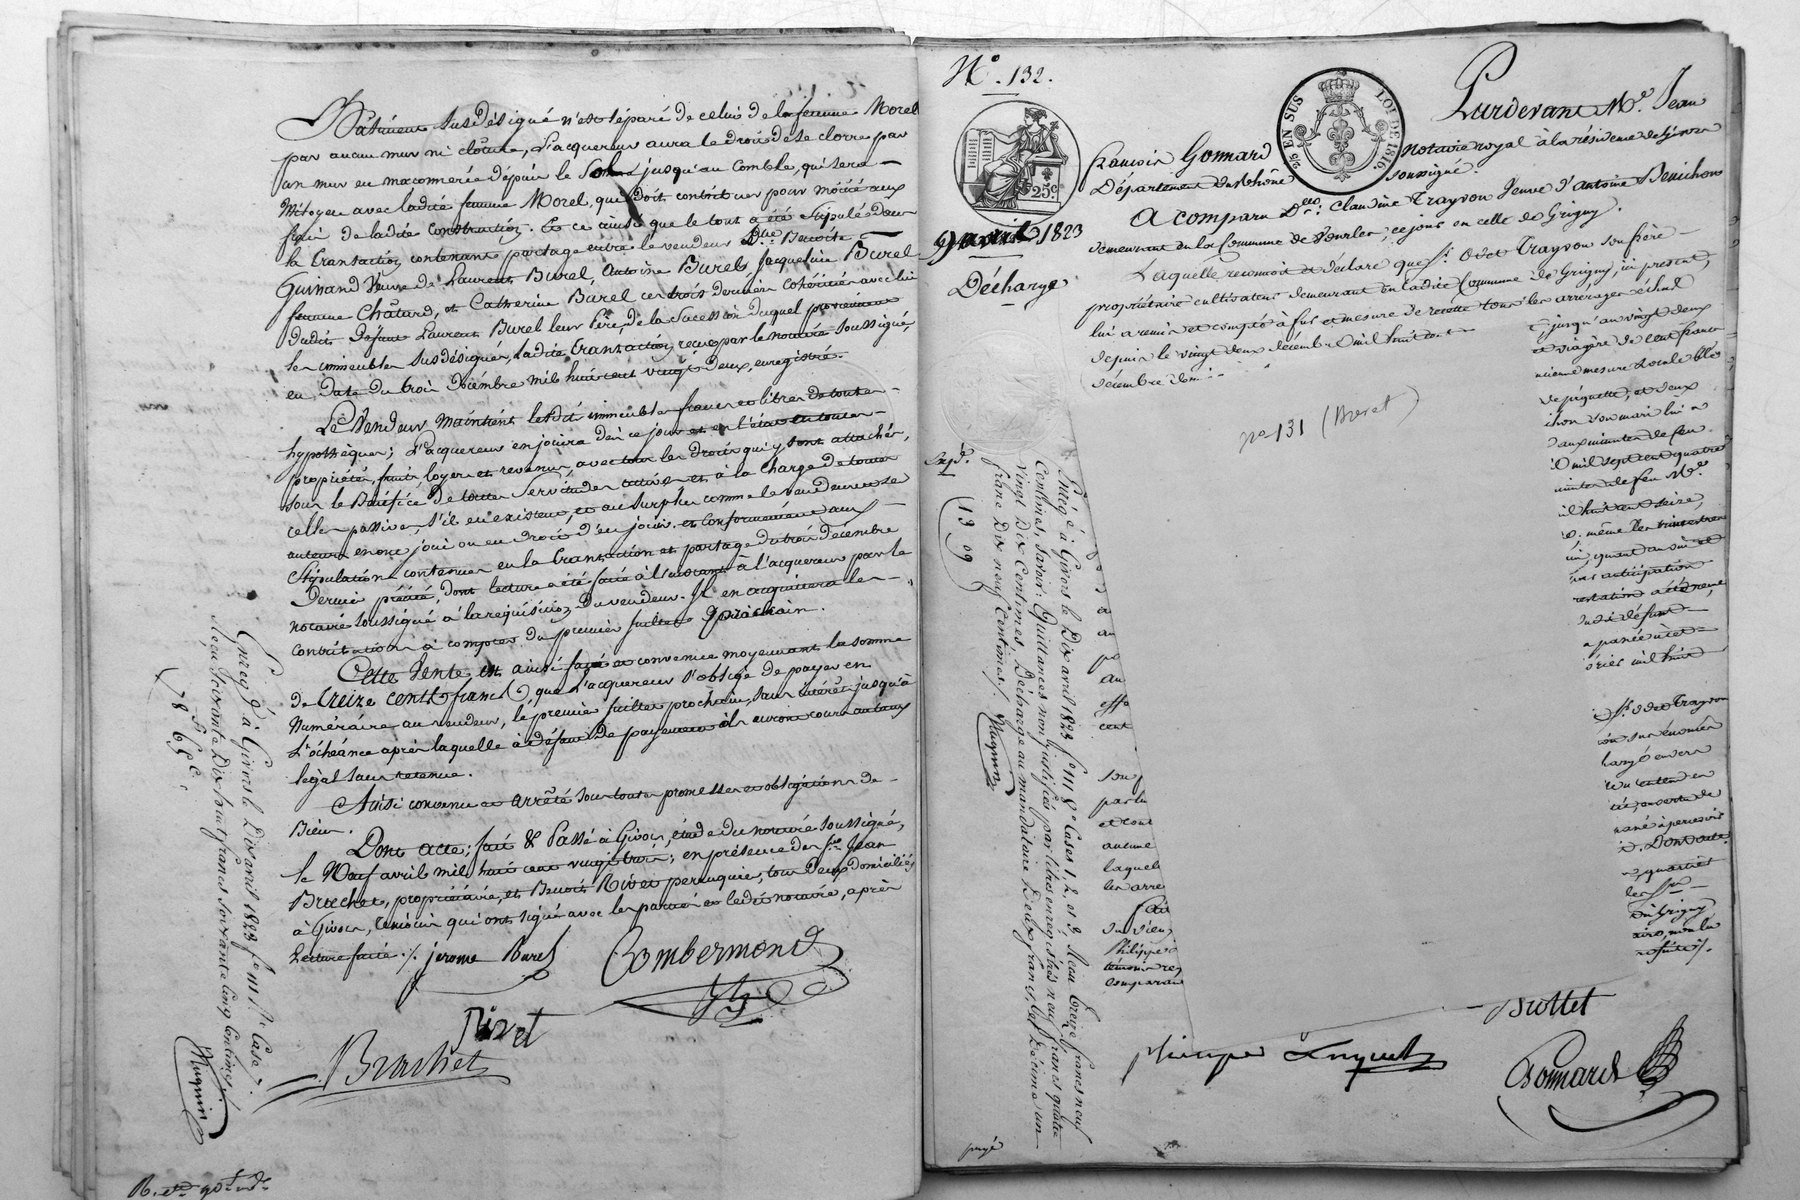 Bâtiment susdésigné n'est séparé de celui de la femme Morel
par aucun mur ni cloture, l'acquereur aura le droit de se clorre par
un mur en maconnerie depuis le Sol jusqu'au comble, qui sera
Mitoyen avec ladite femme Morel, qui doit contribuer pour moitié aux
frais de ladite construction. Et ce ainsi que le tout a été stipulé dans
la transaction contenant partage entre le vendeur Dlle Benoite
Guinand Veuve de Laurent Burel, Antoine Burel, Jacqueline Burel
femme Chatard, et Catherine Burel ces trois dernièrs cohéritiers avec lui
dudit Défunt Laurent Burel leur Père de la Succession duquel proviennent
les immeubles susdésignés, ladite transaction reçue par le notaire soussigné,
en Date du trois Décembre mil huit cent vingt deux, enregistré.
Le Vendeur maintient lesdits immeubles francs et libres de toutes
hypothèques; l'acquereur en jouira dès ce jour et en l'état en toutes
propriétés, fruits, loyers et revenus, avec tous les droits qui y sont attachés,
sous le Bénéfice de toutes Servitudes actives et à la charge de toutes
celles passives, s'il en existent, et au surplus comme le vendeur et ses
auteurs en ont joui ou eu droit d'en jouir et conformément aux
Stipulations contenues en la transaction et partage du trois décembre
Dernier précité, dont lecture a été faite à l'instant à l'acquereur par le
notaire soussigné à la réquisition du vendeur. Il en acquittera les
contributions à compter du premier juillet prochain.
Cette Vente est ainsi faite et convenue moyennant la somme
de treize cents francs, que l'acquereur s'oblige de payer en
Numéraire au vendeur, le premier juillet prochain, sans intérêt jusqu'à
l'échéance après laquelle à défaut de payement ils auront cours au taux
légal sans retenue.
Ainsi convenu et arrêté sous toutes promesses et obligations de
Biens.
Dont acte; fait & Passé à Givors, étude du notaire soussigné,
le Neuf avril mil huit cent vingt trois; en présence des srs Jean
Brachet, propriétaire, et Benoit Rivet perruquier, tous Deux domiciliés
à Givors, témoins qui ont signé avec les parties et ledit notaire, après
Lecture faite ./. jerome Burel
Combermond
Rivet
Brachet
Enreg.é à Givors le Dix avril 1823 f° 111 r° Case 7.
Reçu Soixante Dix huit francs soixante cinq centimes
Nugnin
78 f 65 c
N° 132.
25c.
25c EN SUS LOI DE 1816
9 avril 1823
Décharge
Pardevant Me Jean
François Gonnard notaire royal à la résidence de Givors
Département du Rhône soussigné.
A comparu Dlle Claudine Trayvou Veuve d'Antoine Benichon
demeurant en la Commune de Vourles, ce jour en celle de Grigny.
Laquelle reconnoit et déclare que sr Odet Trayvou son frère
propriétaire cultivateur demeurant en ladite Commune de Grigny, ici présent,
lui a remis et compté à fur et mesure de recette tous les arrérages échus
depuis le vingt deux décembre mil huit cent
jusqu'au vingt deux
décembre
et viagère de cent francs
ancienne mesure locale
de piquette, et deux
ichon son mari lui a
aux minutes de feu
mil sept cent quatre
minutes de feu Me
il huit cent seize,
anticipation
dudit défunt
mil huit
n° 131 (Brevet)
Enreg.é à Givors le Dix avril 1823 f° 111 v° Cases 1, 2, et 3, Recu treize francs neuf
centimes, savoir: Quittances non justifiés par titres enregistrés neuf francs quatre
vingt Dix centimes, Décharge au mandataire Deux francs, et Décime un
franc Dix neuf centimes./. Nugnin
Expd.
13 09
au
po
au
effe
cent
sous
par lu
et tout
aucune
laquel
les arre
Fait
du sieu
Philippe
témoins res
comparan
sr Odet Trayvou
quartier
les srs
de Grigny
Brottet
philippe Luquet
Gonnard
payé